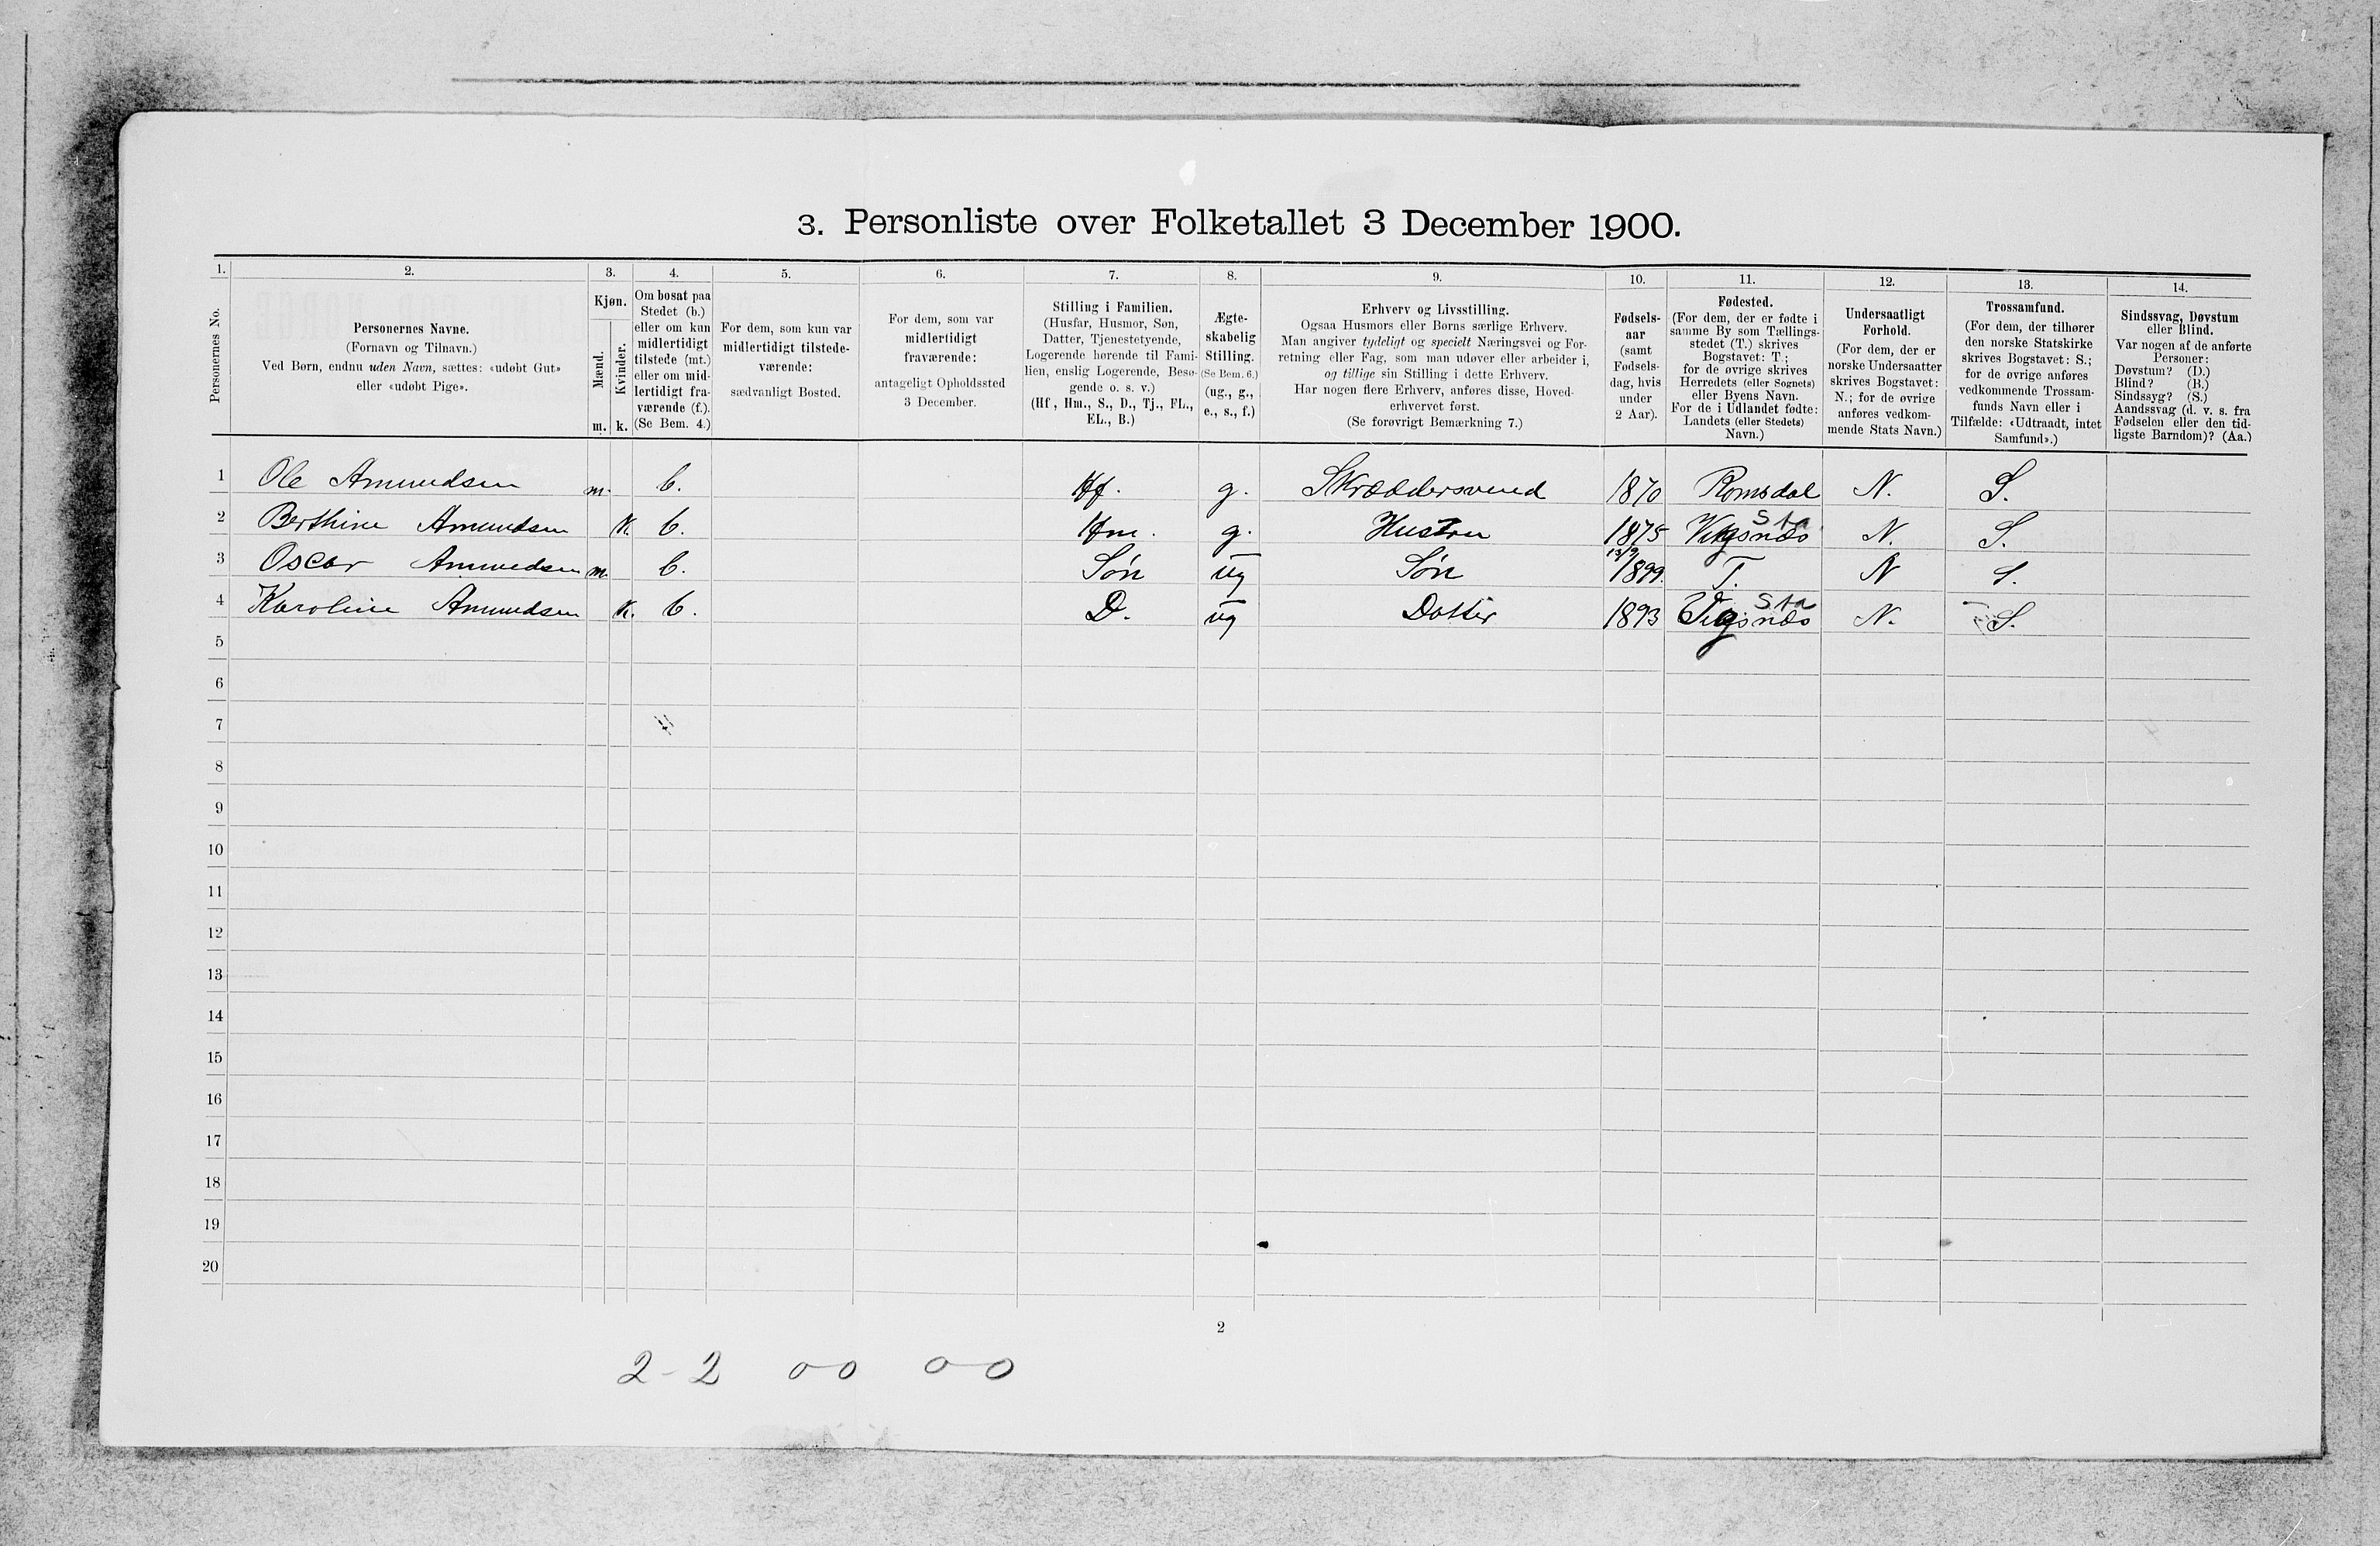 3. Personliste over Folketallet 3 December 1900.
1. 2. 3. 4. 5. 6. 7. 8. 9. 10. 11. 12. 13. 14.
Personernes No.
Personernes Navne.
(Fornavn og Tilnavn.)
Ved Børn, endnu uden Navn, sættes: «udøbt Gut»
eller «udøbt Pige».
Kjøn.
Mænd.
Kvinder.
m. k.
Om bosat paa
Stedet (b.)
eller om kun
midlertidigt
tilstede (mt.)
eller om mid-
lertidigt fra-
værende (f.).
(Se Bem. 4.)
For dem, som kun var
midlertidigt tilstede-
værende:
sædvanligt Bosted.
For dem, som var
midlertidigt
fraværende:
antageligt Opholdssted
3 December.
Stilling i Familien.
(Husfar, Husmor, Søn,
Datter, Tjenestetyende,
Logerende hørende til Fami-
lien, enslig Logerende, Besø-
gende o. s. v.)
(Hf., Hm., S., D., Tj., FL.,
EL., B.)
Ægte-
skabelig
Stilling.
(Se Bem. 6.)
(ug., g.,
e., s., f.)
Erhverv og Livsstilling.
Ogsaa Husmors eller Børns særlige Erhverv.
Man angiver tydeligt og specielt Næringsvei og For-
retning eller Fag, som man udøver eller arbeider i,
og tillige sin Stilling i dette Erhverv.
Har nogen flere Erhverv, anføres disse, Hoved-
erhvervet først.
(Se forøvrigt Bemærkning 7.)
Fødsels-
aar
(samt
Fødsels-
dag, hvis
under
2 Aar).
Fødested.
(For dem, der er fødte i
samme By som Tællings-
stedet (T.) skrives
Bogstavet: T.;
for de øvrige skrives
Herredets (eller Sognets)
eller Byens Navn.
For de i Udlandet fødte:
Landets (eller Stedets)
Navn.)
Undersaatligt
Forhold.
(For dem, der er
norske Undersaatter
skrives Bogstavet:
N.; for de øvrige
anføres vedkom-
mende Stats Navn.)
Trossamfund.
(For dem, der tilhører
den norske Statskirke
skrives Bogstavet: S.;
for de øvrige anføres
vedkommende Trossam-
funds Navn eller i
Tilfælde: «Udtraadt, intet
Samfund».)
Sindssvag, Døvstum
eller Blind.
Var nogen af de anførte
Personer:
Døvstum? (D.)
Blind? (B.)
Sindssyg? (S.)
Aandssvag (d. v. s. fra
Fødselen eller den tid-
ligste Barndom)? (Aa.)
1 Ole Amundsen m. b. Hf. g. Skræddersvend 1870 Romsdal N. S.
2 Berthine Amundsen k. b. Hm. g. Hustru 1875 Vigsnæs Sta N. S.
3 Oscar Amundsen m. b. Søn ug Søn 13/9 1899. T. N S.
4 Karoline Amundsen k. b. D. ug Datter 1893 Vigsnæs Sta N. S.
5
6
7
8
9
10
11
12
13
14
15
16
17
18
19
20
2
2-2 00 00